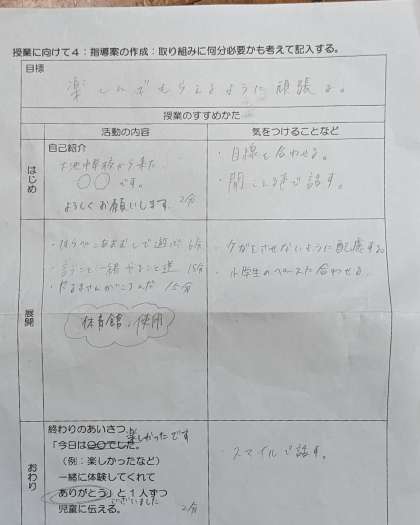 授業に向けて４：指導案の作成：取り組みに何分必要かも考えて記入する。
目標
楽しんでもらえるように頑張る。
授業のすすめかた
活動の内容
気をつけることなど
はじめ
自己紹介
から来た
〇〇です。
よろしくお願いします。 2分
・目線を合わせる。
・聞こえる声で話す。
展開
・はらぺこあおむしで遊ぶ 6分
・言うこと一緒やること逆 15分
・だるまさんがころんだ 15分
体育館:使用
・ケガをさせないように配慮する
・小学生のペースに合わせる。
おわり
終わりのあいさつ
楽しかったです
「今日は〇〇でした。
（例：楽しかったなど）
一緒に体験してくれて
ありがとう」と１人ずつ
ございました
児童に伝える。 2分
・スマイルで話す。